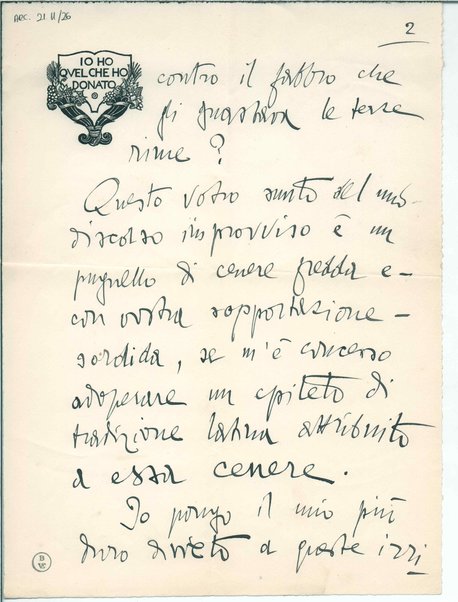 ARC. 21 II/26
2
IO HO
QVEL CHE HO
DONATO
contro il fabbro che
gli guastava le terze
rime?
Questo vostro sunto del mio
discorso improvviso è un
pugnello di cenere fredda e –
con vostra sopportazione –
sordida, se m'è concesso
adoperare un epiteto di
tradizione latina attribuito
a essa cenere.
Io pongo il mio più
duro divieto a queste irri